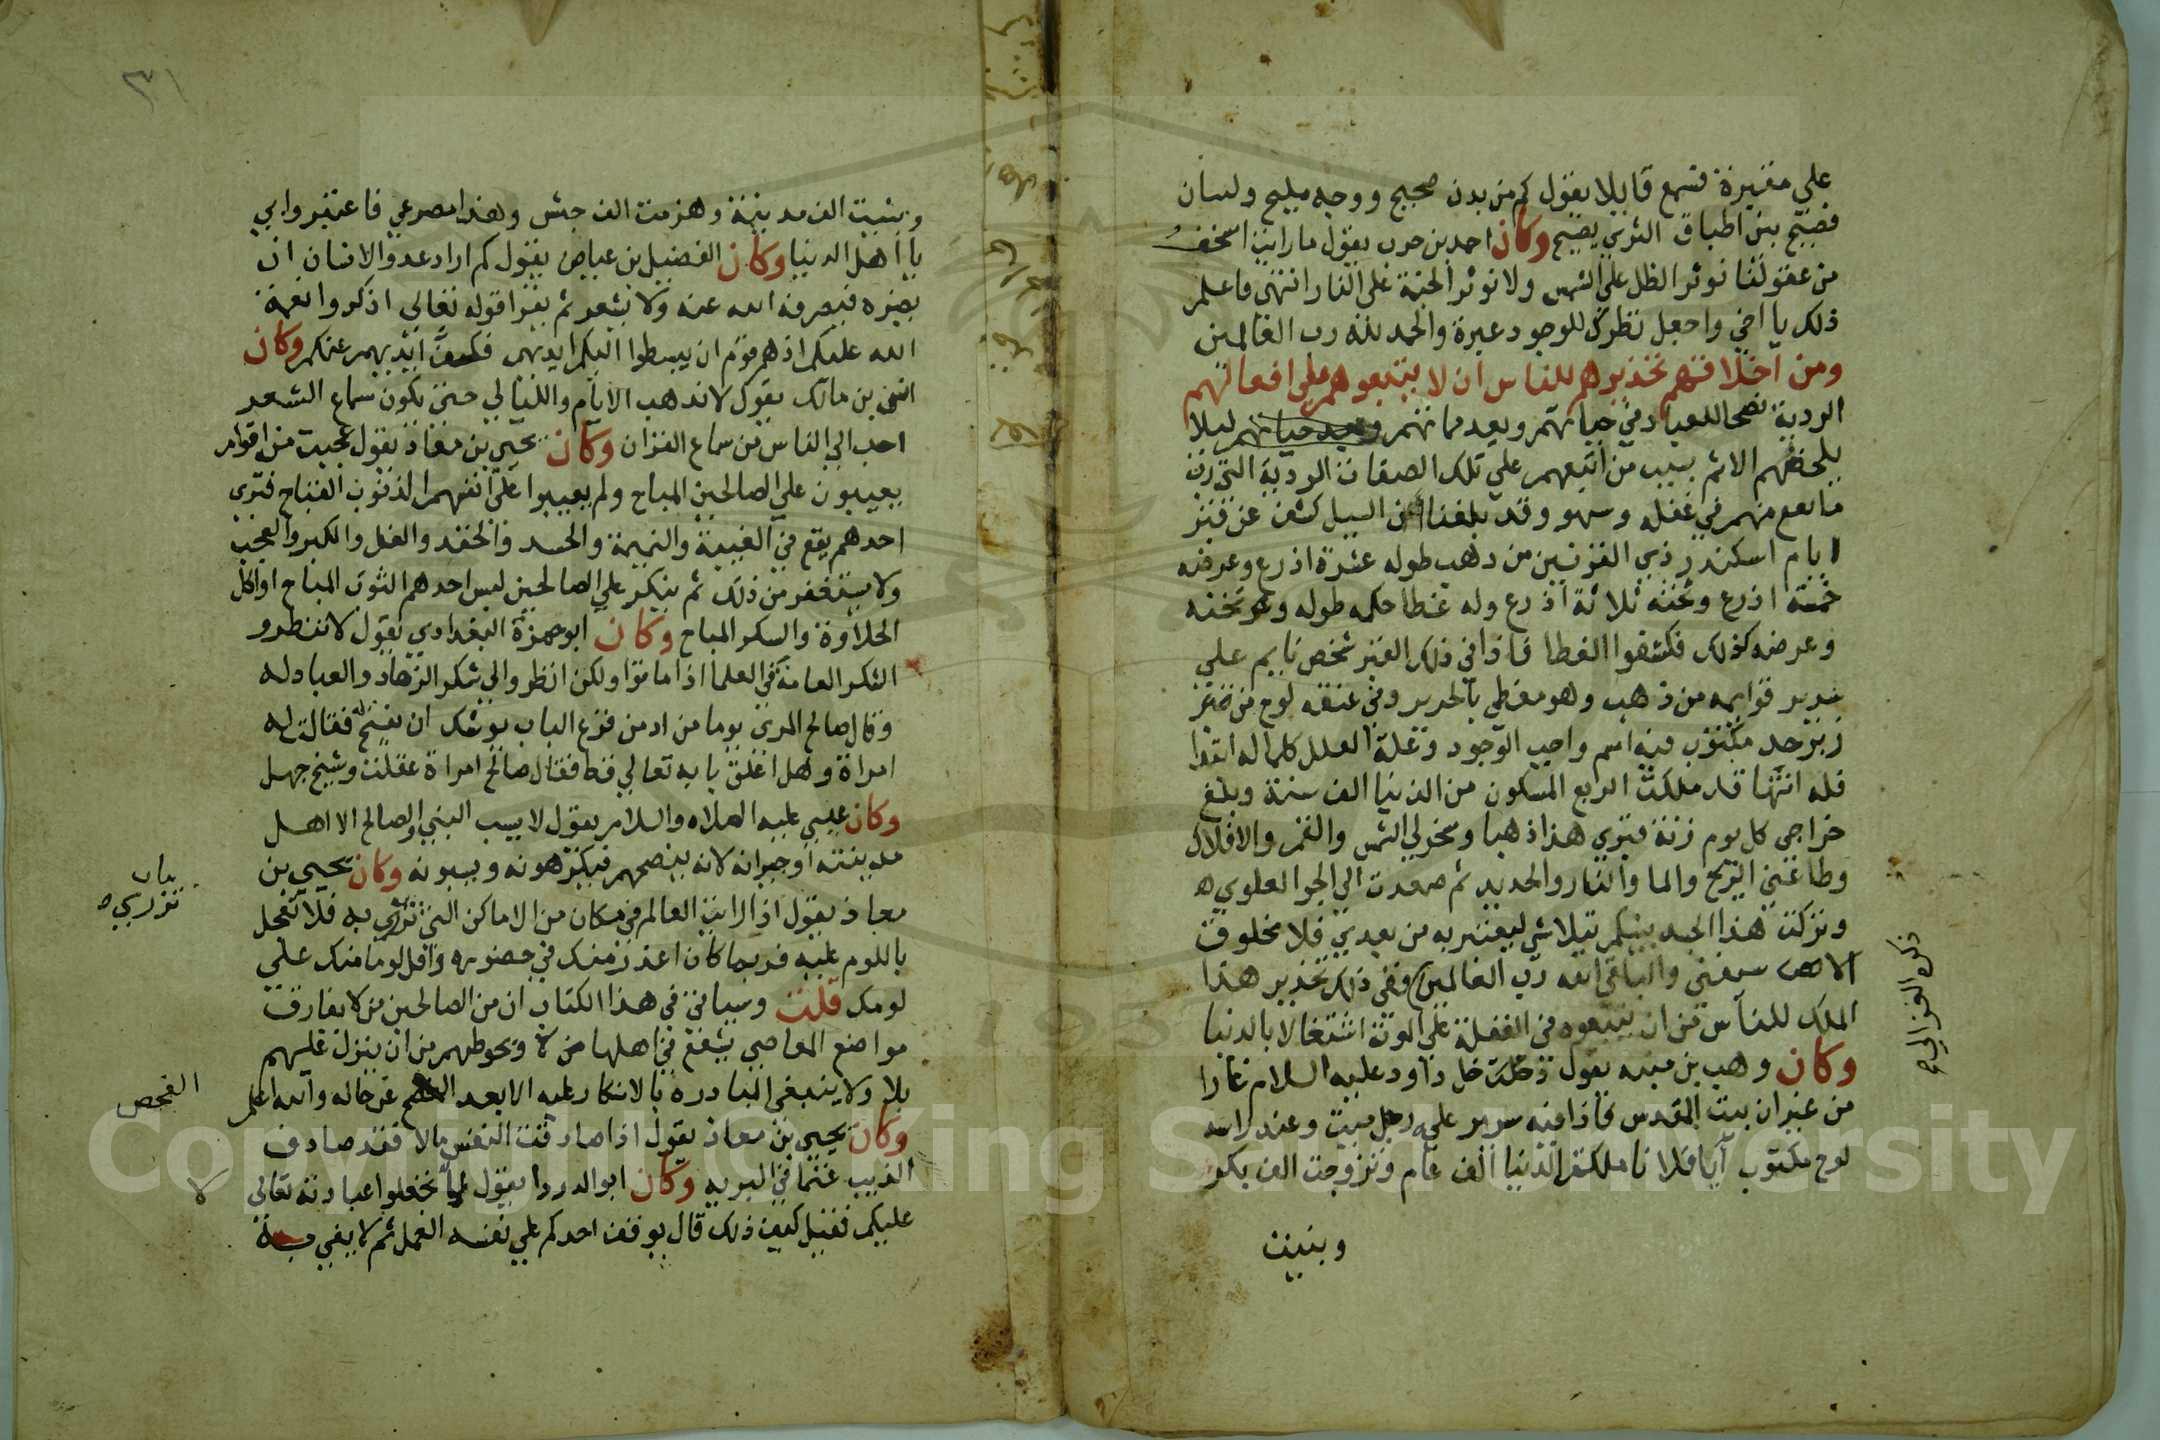 علي مقبرة فسمع قايلا يقول كم من بدن صحيح ووجه مليح ولسان
فصيح بين اطباق الثري يصيح وكان احمد بن حرب يقول ما رايت اسخف
من عقولنا نوثر الظل علي الشمس ولا نوثر الجنة علي النار انتهي فاعلم
ذلك يا اخي واجعل نظرك للوجود عبرة والحمد لله رب العالمين
ومن اخلاقهم تحذيرهم للناس ان لا يتبعوهم علي افعالهم
الردية نصحا للعباد في حياتهم وبعد مماتهم وبعد حياتهم ليلا
يلحقهم الاثم بسبب من اتبعهم علي تلك الصفات الردية التي
ما تقع منهم في غفله وسهو وقد بلغنا ان السيل كشف عن قبر
ايام اسكندر ذي القرنين من ذهب طوله عشرة اذرع وعرضه
خمسة اذرع وتخنه ثلاثة اذرع وله غطا حكمه طوله وتخنه
وعرضه كذلك فكشفوا الغطا فاذا في ذلك القبر شخص نايم علي
سرير قوايمه من ذهب وهو مغطي بالحرير وفي عنقه لوح من
زبرجد مكتوب فيه اسم واجب الوجود وعلة العلل كلما له ابتدا
فله انتها قد ملكت الربع المسكون من الدنيا الف سنة وبلغ
خراجي كل يوم زنة فتري هذا ذهبا وسخر لي الشمس والقمر والافلاك
وطاعني الريح والما والنار والحديد ثم صعدت الي الجو العلوي
وتركت هذا الجسد بينكم يتلاشي ليعتبر به من بعدي فلا مخلوق
الا وسيفني والباقي الله رب العالمين وفي ذلك تحذير هذا
الملك للناس من ان يتبعوه في الغفلة علي الموت اشتغالا بالدنيا
وكان وهب بن منبه يقول دخل داود عليه السلام غارا
من غيران بيت المقدس فاذا فيه سرير عليه رجل ميت وعند راسه
لوح مكتوب انا فلان ملكت الدنيا الف عام وتزوجت الف بكر
وبنيت
ذكر العزالي
٣١
وبنيت الف مدينة وهزمت الف جيش وهذا مصرعي فاعتبروا بي
يا اهل الدنيا وكان الفضيل بن عياض يقول كم اراد عدو الانسان ان
يضره فيصرفه الله عنه ولا يشعر ثم يقرا قوله تعالي اذكروا نعمة
الله عليكم اذ هم قوم ان يبسطوا اليكم ايديهم فكف ايديهم عنكم وكان
انس بن مالك يقول لا تذهب الايام والليالي حتي يكون سماع الشعر
احب الي الناس من سماع القران وكان يحيي بن معاذ يقول عجبت من اقوام
يعيبون علي الصالحين المباح ولم يعيبوا علي انفسهم الذنوب القباح فتري
احدهم يقع في الغيبة والنميمة والحسد والحقد والغل والكبر والعجب
ولا يستغفر من ذلك ثم ينكر علي الصالحين لبس احدهم الثوب المباح او اكل
الحلاوة والسكر المباح وكان ابو حمزة البغدادي يقول لا تنظروا
الشكر العامة في العلما اذا ماتوا ولكن انظروا الي شكر الزهاد والعباد له
وقال صالح المري يوما من ادمن قرع الباب يوشك ان يفتح له فقالت له
امراة وهل اغلق بابه تعالي قط فقال صالح امراة عقلت وشيخ جهل
وكان عيسي عليه الصلاه والسلام يقول لا يسب النبي والصالح الا اهل
مدينته او جيرانه لانه ينصحهم فيكرهونه ويسبونه وكان يحيي بن
معاذ يقول اذا رايت العالم في مكان من الاماكن التي تزري به فلا تعجل
باللوم عليه فربما كان اعذر منك في حضوره واقل لوما منك علي
لومك قلت وسياتي في هذا الكتاب ان من الصالحين من لا يفارق
مواضع المعاصي يشفع في اهلها ويحوطهم من ان ينزل عليهم
بلا ولا ينبغي المبادرة بالانكار عليه الا بعد عن حاله والله اعلم
وكان يحيي بن معاذ يقول اذا صادقت النفس مالا فقد صادف
الذيب غنما في البريه وكان ابو الدردا يقول لا تجعلوا عبادته تعالي
عليكم فقيل كيف ذلك قال يوقف احدكم علي نفسه العمل ثم لا يفي
بيان
تزري به
الفحص
لا
Copyright © King Saud University